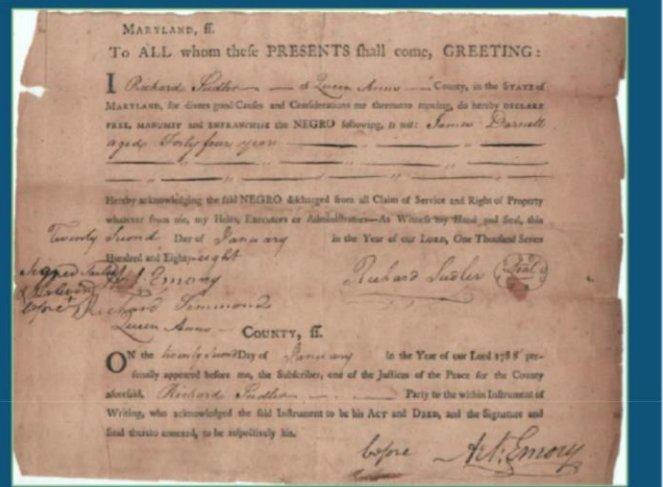 MARYLAND, ſſ.
To ALL whom theſe PRESENTS ſhall come, GREETING:
I Richard Sudler of Queen Anns County, in the STATE of
MARYLAND, for divers good Cauſes and Conſiderations me thereunto moving, do hereby DECLARE
FREE, MANUMIT and ENFRANCHISE the NEGRO following, to wit: James Darnell
aged Forty four years
Hereby acknowledging the ſaid NEGRO diſcharged from all Claim of Service and Right of Property
whatever from me, my Heirs, Executors or Adminiſtrators—As Witneſs my Hand and Seal, this
Twenty Second Day of January in the Year of our LORD, One Thouſand Seven
Hundred and Eighty-eight
Signed Sealed
before
At. Emory
Richard Sudler Seal
Richard Simmonds
Queen Anns
COUNTY, ſſ.
ON the twenty second Day of January in the Year of our Lord 1788 per-
ſonally appeared before me, the Subſcriber, one of the Juſtices of the Peace for the County
aforeſaid, Richard Sudler Party to the within Inſtrument of
Writing, who acknowledged the ſaid Inſtrument to be his ACT and DEED, and the Signature and
Seal thereto annexed, to be reſpectively his.
before At. Emory